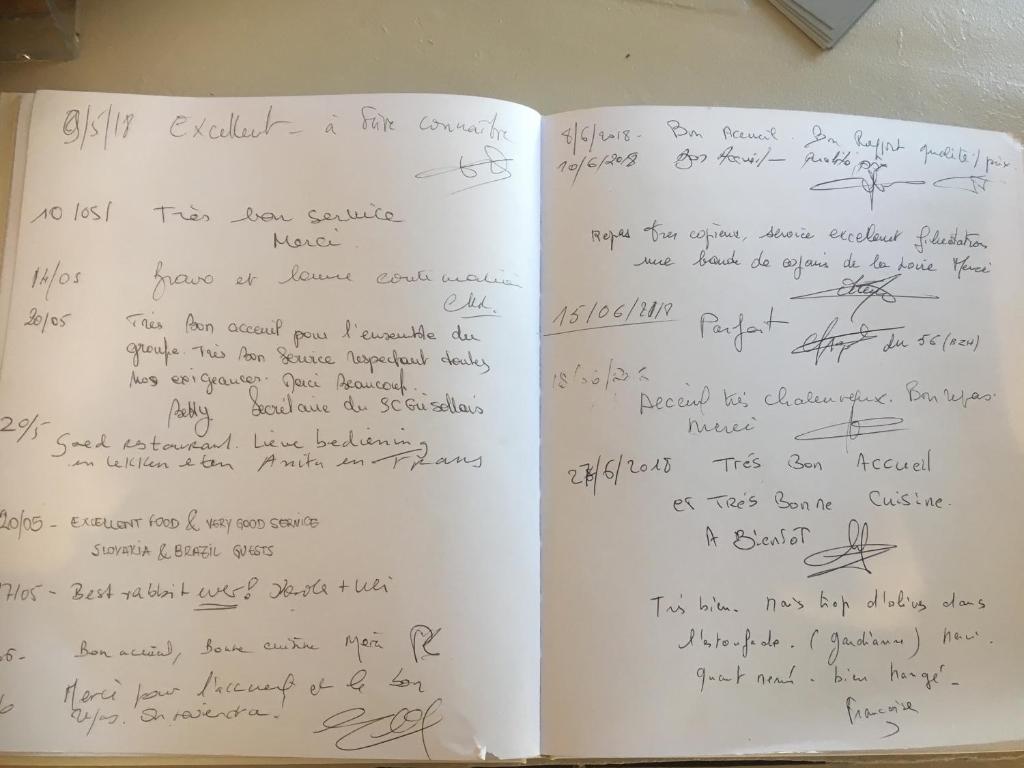 9/5/18 Excellent - à faire connaître
10/05/ Très bon service
Merci.
14/05 Bravo et bonne continuation
20/05 Très Bon acceuil pour l'ensemble du
groupe. Très Bon Service respectant toutes
nos exigeances. Merci Beaucoup.
Betty Secrétaire du SC
20/5 Goed restaurant. Lieve bediening
en lekker eten Anita en Frans
20/05 - EXCELLENT FOOD & VERY GOOD SERVICE
SLOVAKIA & BRAZIL GUESTS
7/05 - Best rabbit ever! + Ueli
Bon accueil, Bonne cuisine Merci
Merci pour l'accueil et le bon
repas. On reviendra.
8/6/2018 - Bon Accueil. Bon Rapport qualité/prix
10/6/2018 Bon Accueil -
Repas très copieux, service excellent félicitations
une bande de copains de la Loire Merci
15/06/2018 Parfait
du 56 (BZH)
Acceuil très chaleureux. Bon repas.
Merci
27/6/2018 Trés Bon Accueil
et Trés Bonne Cuisine.
A Bientôt
Très bien. Mais trop d'olives dans
l'estoufade. (gardianne) Merci.
quant même. bien mangé -
Françoise